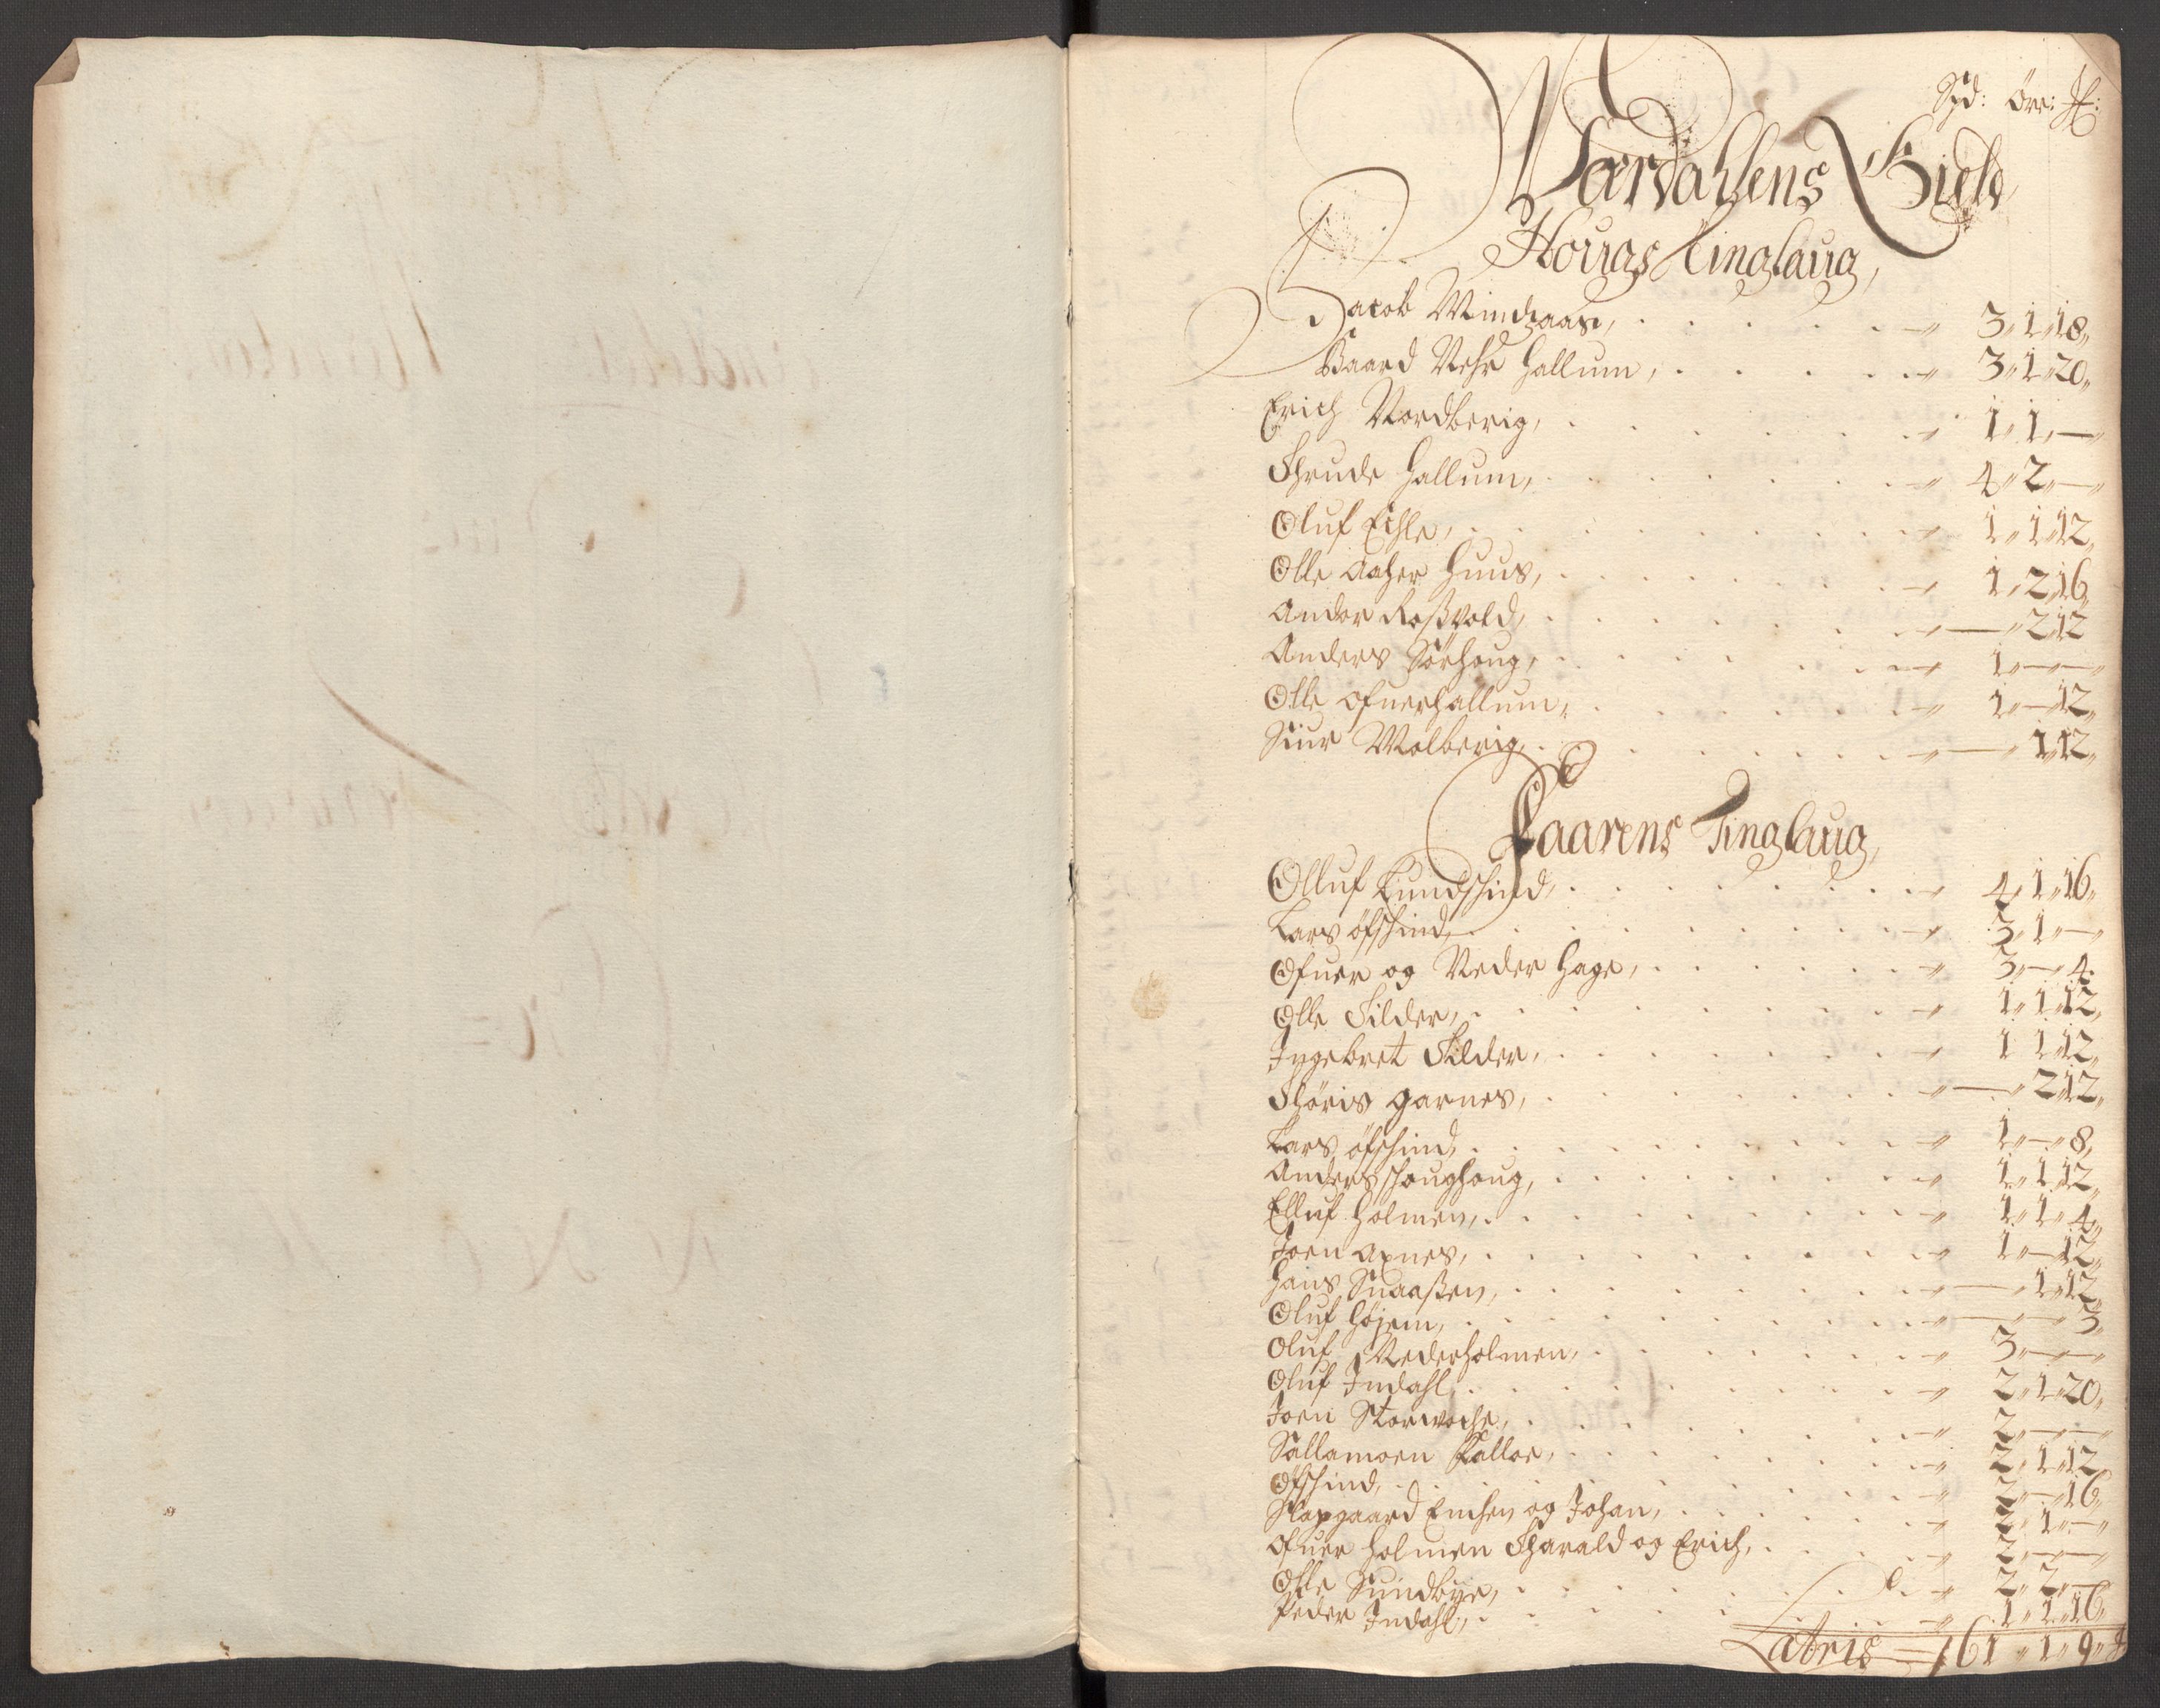 Spd: Öre: ꝉ:
Værdahlens Gield,
Hougs Tinglaug,
Jacob Mindhaas, 3„ 1„ 18„
Baard Nehr Hallum, 3„ 1„ 20„
Erich Nordberig, 1„ 1„ —„
Schrude Hallum, 4„ 2„ —„
Oluf Echle, 1„ 1„ 12„
Olle Aaker Huus, 1„ 2„ 16„
Andor Roßvold, —„ 2„ 12
Anders Sörhoug, 1„ —„ —„
Olle Ofuerhallum, 1„ — 12„
Siur Molberig, —„ 1„ 12„
Faarens Tinglaug,
Olluf Lundschind, 4„ 1„ 16„
Lars öfschind, 3„ 1„ —„
Ofuer og Neder Hage, 3„ —„ 4„
Olle Silder, 1„ 1„ 12„
Ingebret Silder, 1 1„ 12„
Schöris Garnes, —„ 2„ 12„
Lars öfschind, 1„ —„ 8„
Anders Schoughoug, 1„ 1„ 12„
Elluf Holmen, 1„ 1„ 4„
Joen Axnes, 1„ — 12„
Hans Snaaßen, — 1„ 12„
Oluf Höjem, — 3„
Oluf Nederholmen, 3„ —„ —„
Oluf Indahl, 2„ 1„ 20„
Joen Storwoche, 2„ —„ —„
Sallamoen Kalloe, 2„ 1„ 12„
Öfschind, 2„ — 16„
Slapgaard Enchen og Johan, 2„ 1„ —„
Ofuer Holmen Tharald og Erich, 2„ —„ —„
Olle Sundbye, 2„ 2„ —
Peder Indahl, 1„ 1„ 16„
Latris = 61„ 1„ 9„